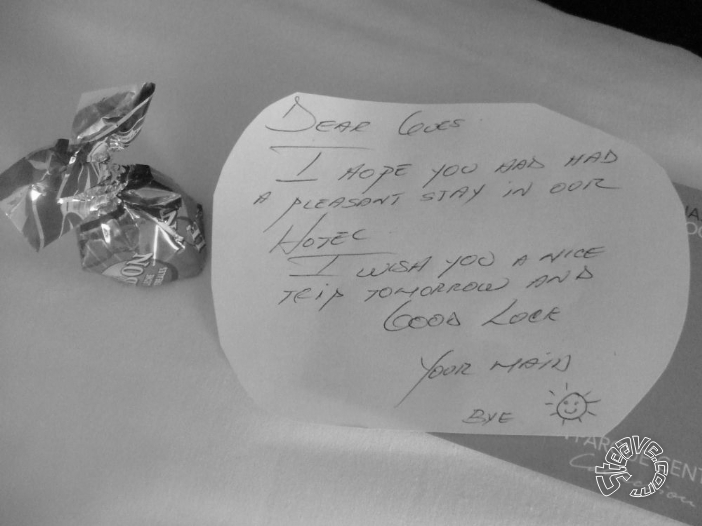 DEAR GUES
I HOPE YOU HAD HAD
A PLEASANT STAY IN OUR
HOTEL
I WISH YOU A NICE
TRIP TOMORROW AND
GOOD LOCK
YOUR MAID
BYE
Steave.com